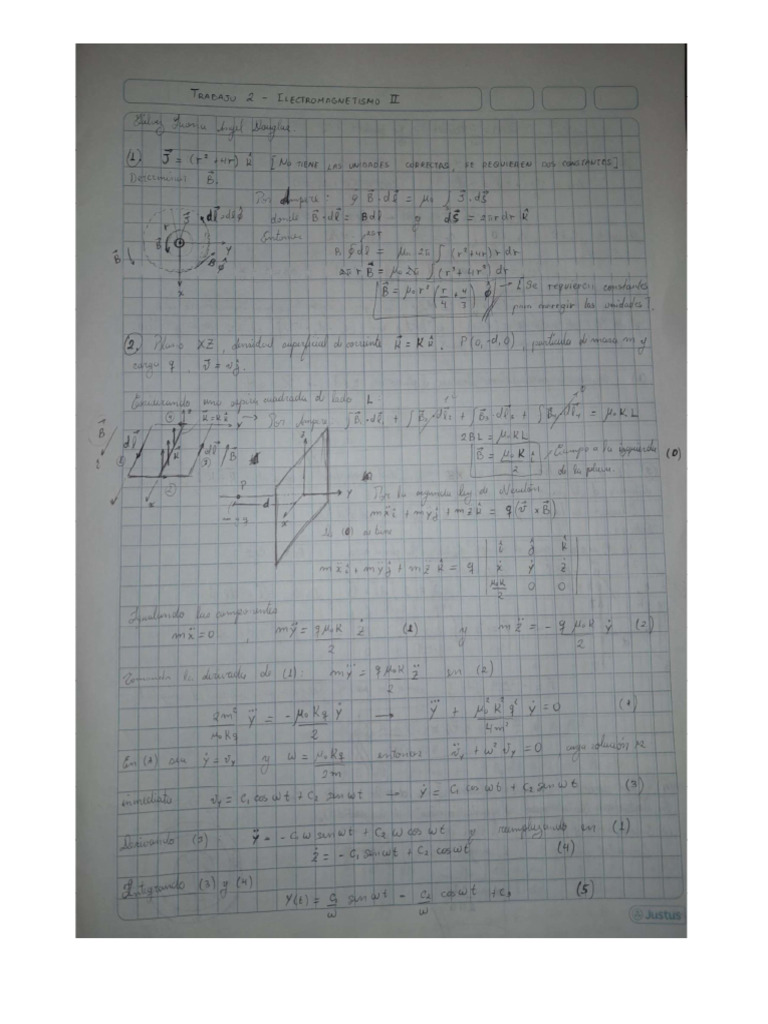 TRABAJO 2 - ELECTROMAGNETISMO II
Angel Douglas.
(1.) J⃗ = (r² + 4r) k̂ [NO TIENE LAS UNIDADES CORRECTAS, SE REQUIEREN DOS CONSTANTES]
Determinar B⃗.
Por Ampere: ∮ B⃗·dl⃗ = μ₀ ∫ J⃗·dS⃗
donde B⃗·dl⃗ = Bdl y dS⃗ = 2πrdr k̂
Entonces
B ∮dl = μ₀ 2π ∫ (r² + 4r) r dr
2πr B⃗ = μ₀ 2π ∫ (r³ + 4r²) dr
B⃗ = μ₀ r² (r/4 + 4/3) φ̂ → [Se requieren constantes
para corregir las unidades].
(2.) Plano XZ, densidad superficial de corriente K⃗ = K k̂, P(0,-d,0), partícula de masa m y
carga q, v⃗ = v ĵ.
una espira cuadrada de lado L:
Por Ampere ∫B₁·dl₁ + ∫B₂·dl₂ + ∫B₃·dl₃ + ∫B₄·dl₄ = μ₀KL
2BL = μ₀KL
B⃗ = μ₀K/2 î Campo a la izquierda (0)
de la placa.
Por la segunda ley de Newton
mẍ î + mÿ ĵ + mz̈ k̂ = q(v⃗ × B⃗)
mẍ î + mÿ ĵ + mz̈ k̂ = q | î ĵ k̂ |
| ẋ ẏ ż |
| μ₀K/2 0 0 |
Igualando las componentes
mẍ = 0 , mÿ = qμ₀K/2 ż (1) y mz̈ = - qμ₀K/2 ẏ (2)
Tomando la derivada de (1): mÿ̇ = qμ₀K/2 z̈ en (2)
2m²/μ₀Kq ÿ̇ = - μ₀Kq/2 ẏ → ÿ̇ + μ₀²K²q²/4m² ẏ = 0
En sea ẏ = v_y y ω = μ₀Kq/2m entonces v̈_y + ω² v_y = 0 cuya solución es
inmediata v_y = C₁ cos ωt + C₂ sin ωt → ẏ = C₁ cos ωt + C₂ sin ωt (3)
Derivando (3): ÿ = - C₁ω sin ωt + C₂ ω cos ωt y reemplazando en (1)
ż = - C₁ sin ωt + C₂ cos ωt (4)
Integrando (3) y (4)
y(t) = C₁/ω sin ωt - C₂/ω cos ωt + C₃ (5)
Justus